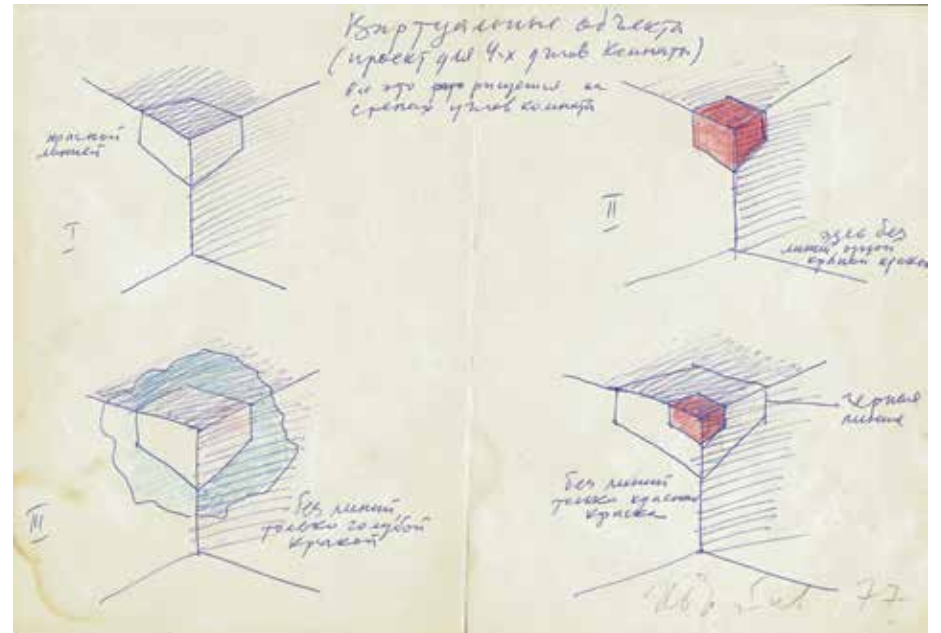 Виртуальные объекты
(проект для 4-х углов комнаты)
все это рисуется на
стенах углов комнаты
красной
линией
I
II
здесь без
линий одной
красной краской
III
без линий,
только голубой
краской
черная
линия
без линий
только красная
краска
77